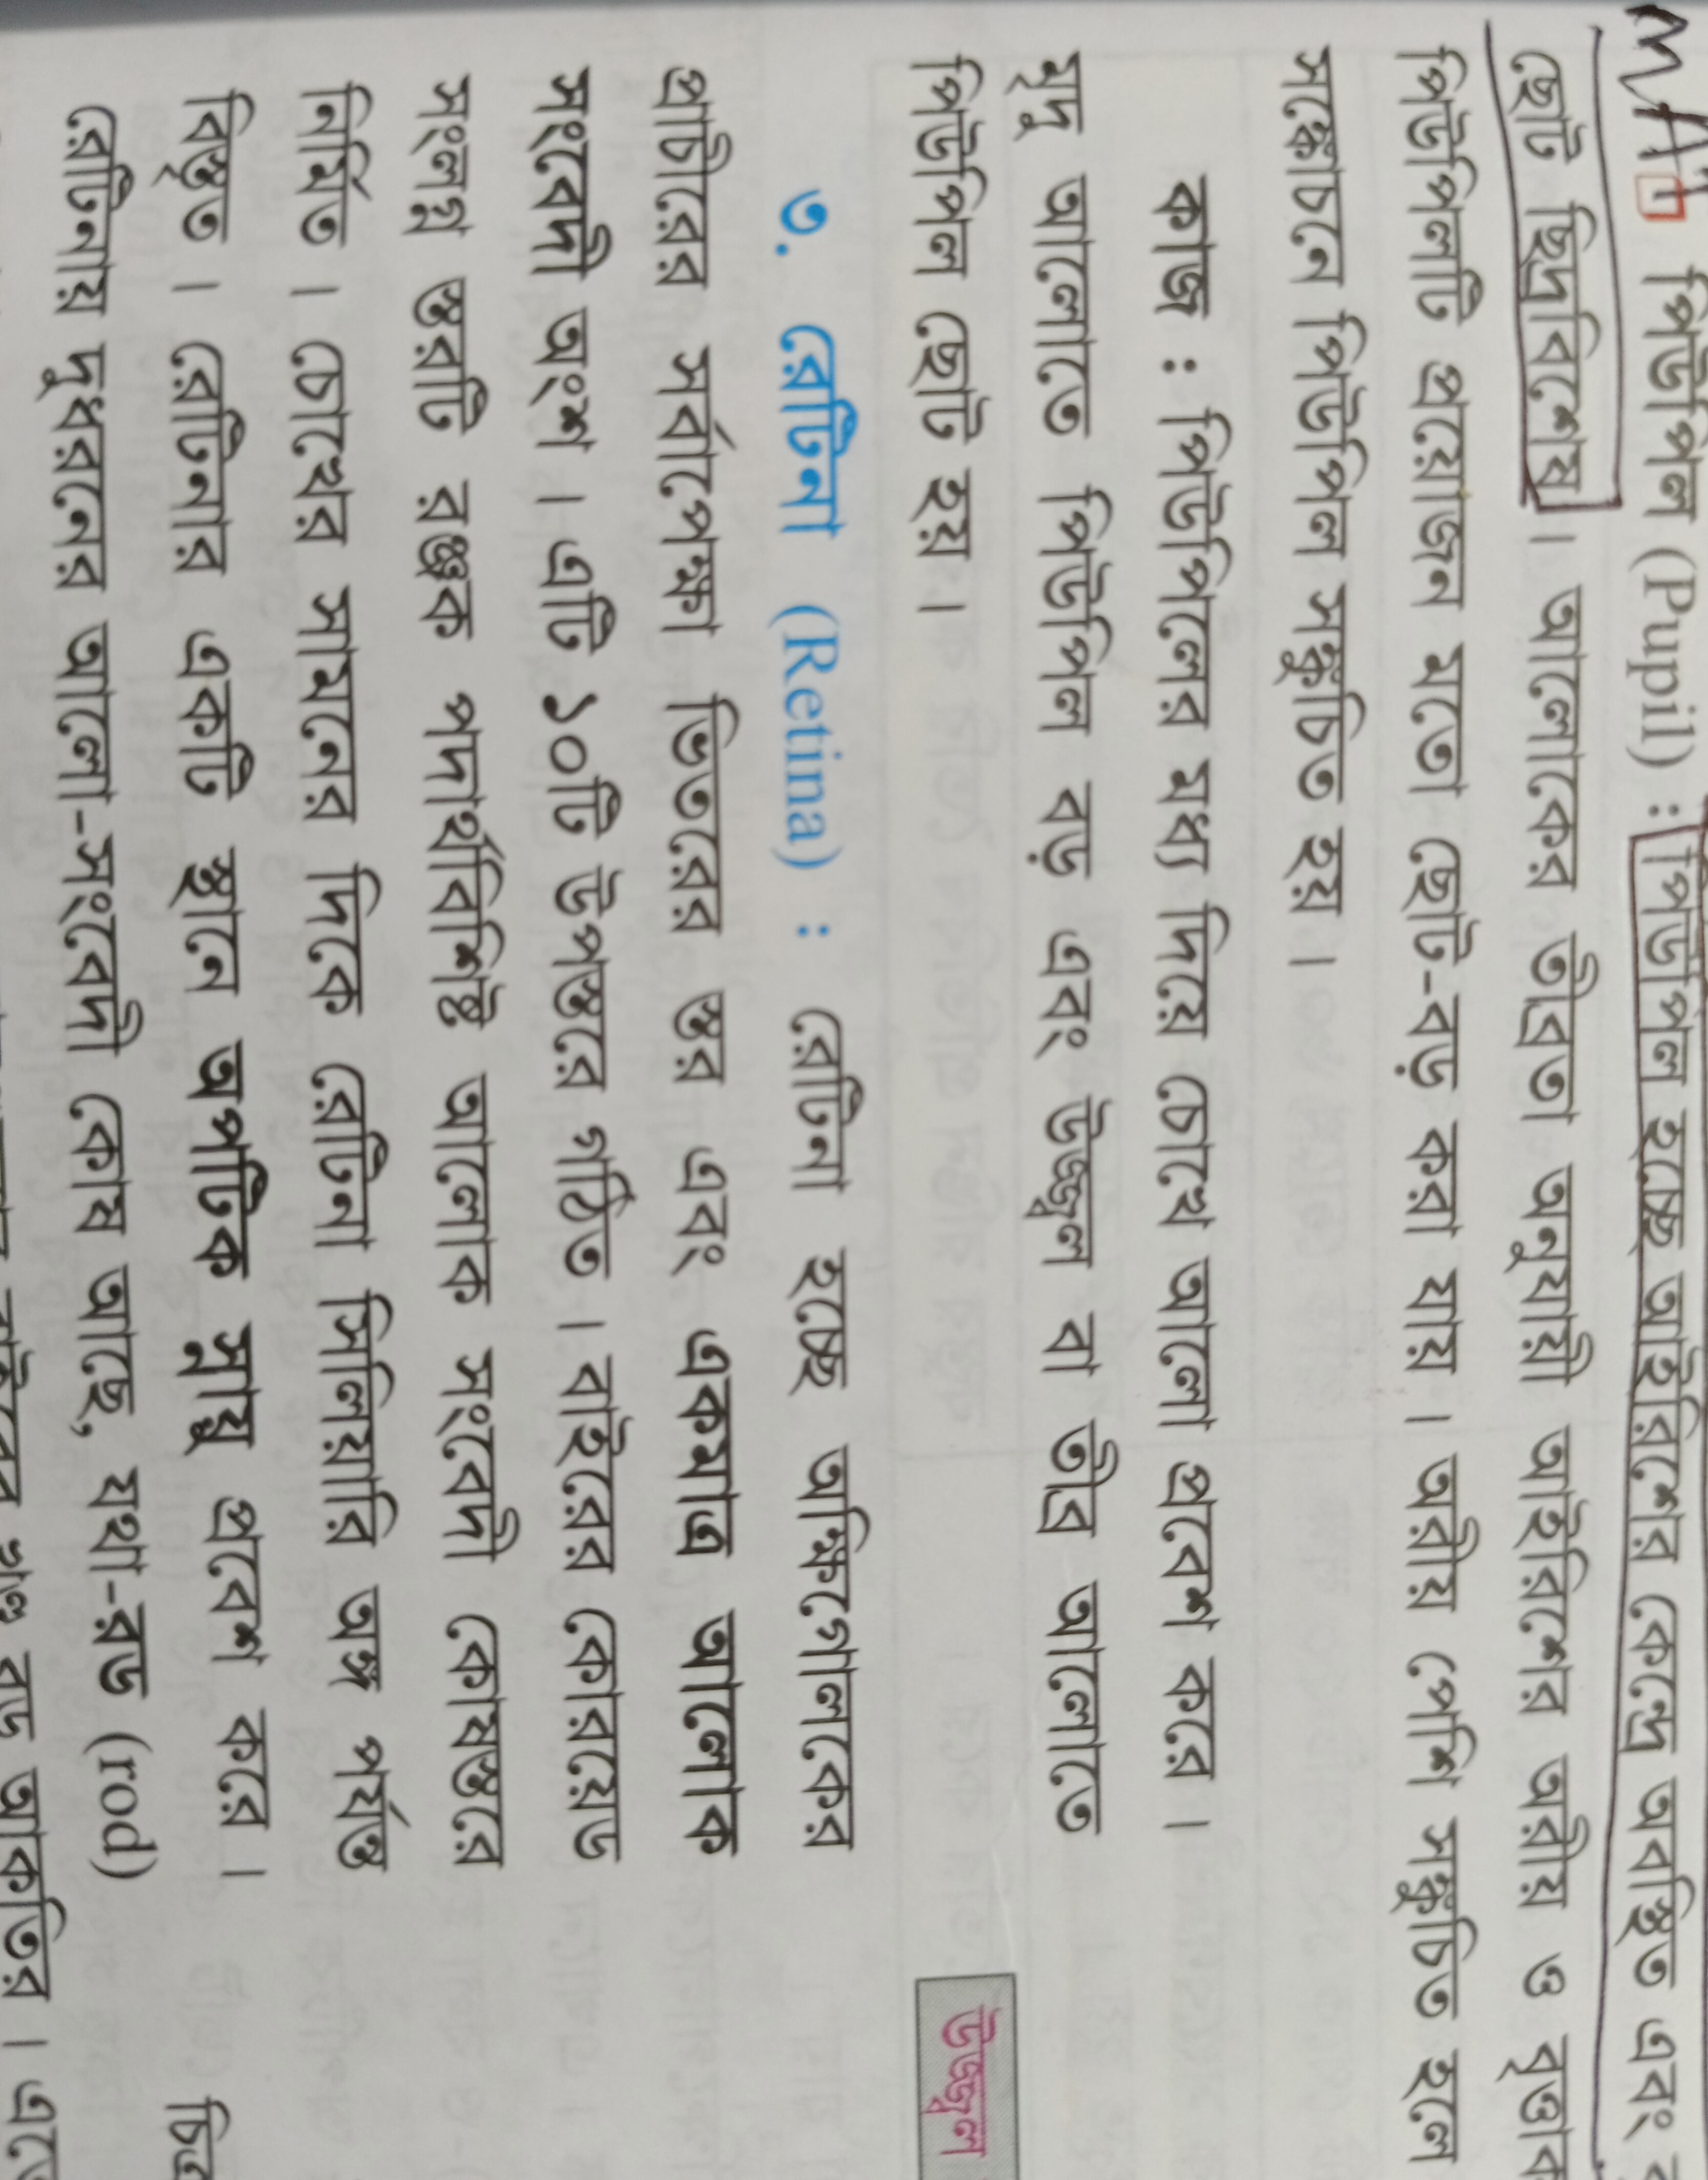 MAT পিউপিল (Pupil) : পিউপিল হচ্ছে আইরিশের কেন্দ্রে অবস্থিত এবং
ছোট ছিদ্রবিশেষ। আলোকের তীব্রতা অনুযায়ী আইরিশের অরীয় ও বৃত্তাব
পিউপিলটি প্রয়োজন মতো ছোট-বড় করা যায়। অরীয় পেশি সঙ্কুচিত হলে
সঙ্কোচনে পিউপিল সঙ্কুচিত হয়।
কাজ : পিউপিলের মধ্য দিয়ে চোখে আলো প্রবেশ করে।
মৃদু আলোতে পিউপিল বড় এবং উজ্জ্বল বা তীব্র আলোতে
পিউপিল ছোট হয়।
উজ্জ্বল
৩. রেটিনা (Retina) : রেটিনা হচ্ছে অক্ষিগোলকের
প্রাচীরের সর্বাপেক্ষা ভিতরের স্তর এবং একমাত্র আলোক
সংবেদী অংশ। এটি ১০টি উপস্তরে গঠিত। বাইরের কোরয়েড
সংলগ্ন স্তরটি রঞ্জক পদার্থবিশিষ্ট আলোক সংবেদী কোষস্তরে
নির্মিত। চোখের সামনের দিকে রেটিনা সিলিয়ারি অঙ্গ পর্যন্ত
বিস্তৃত। রেটিনার একটি স্থানে অপটিক স্নায়ু প্রবেশ করে।
চিত্র
রেটিনায় দুধরনের আলো-সংবেদী কোষ আছে, যথা-রড (rod)
রড আকৃতির।